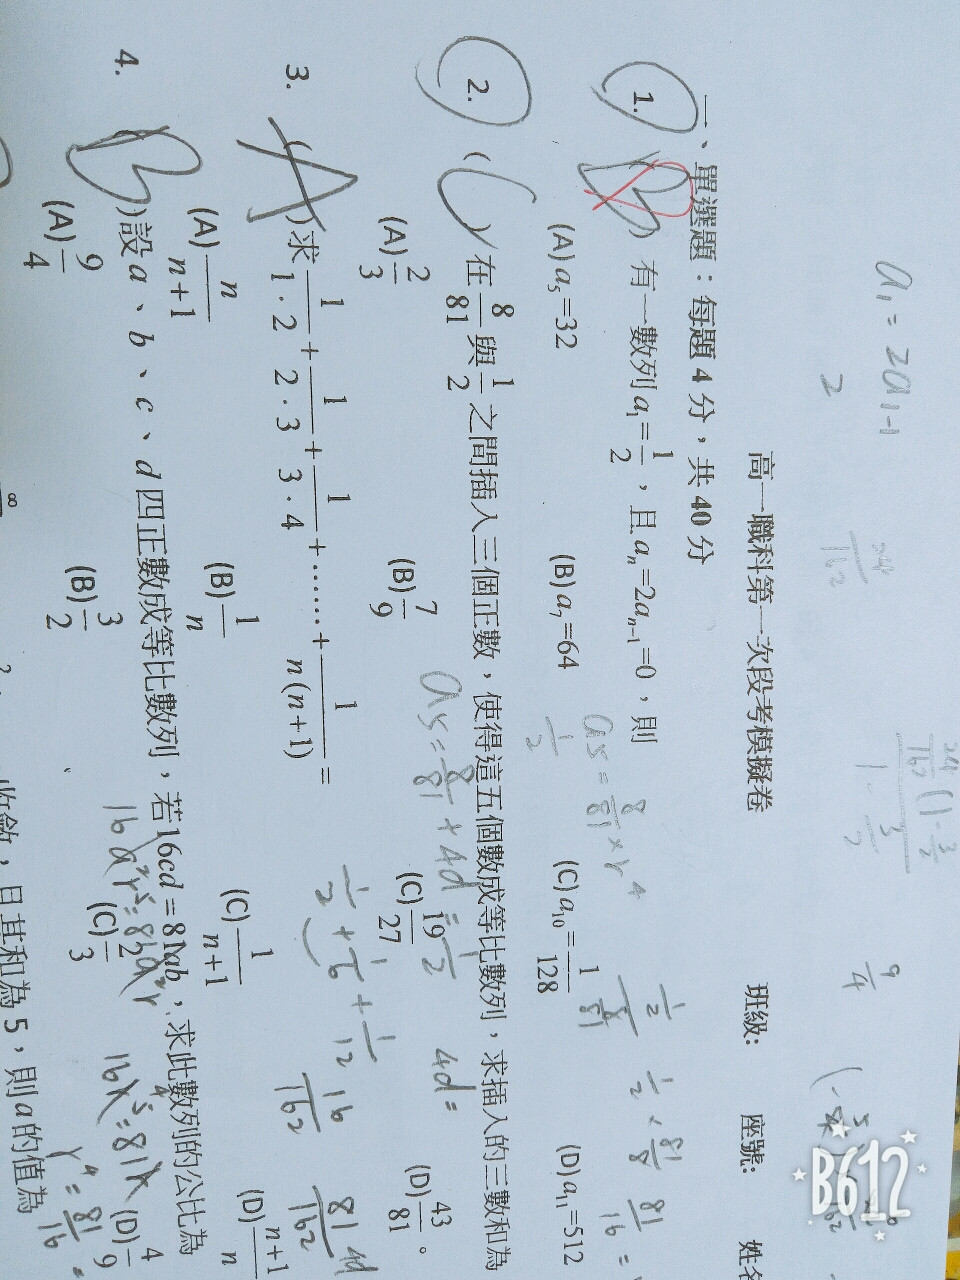 高一職科第一次段考模擬卷 班級: 座號: 姓名
一、單選題：每題 4 分，共 40 分
1. (B) 有一數列 a₁=1/2，且 aₙ=2aₙ₋₁=0，則
(A) a₅=32 (B) a₇=64 (C) a₁₀=1/128 (D) a₁₁=512
2. (C) 在 8/81 與 1/2 之間插入三個正數，使得這五個數成等比數列，求插入的三數和為
(A) 2/3 (B) 7/9 (C) 19/27 (D) 43/81 。
3. (A) 求 1/(1·2) + 1/(2·3) + 1/(3·4) + …… + 1/(n(n+1)) =
(A) n/(n+1) (B) 1/n (C) 1/(n+1) (D) (n+1)/n
4. (B) 設 a、b、c、d 四正數成等比數列，若 16cd = 81ab，求此數列的公比為
(A) 9/4 (B) 3/2 (C) 2/3 (D) 4/9
收斂，且其和為 5，則 a 的值為
a₁ = 2a₁₋₁
2
9/4
a₅ = 8/81 × r⁴
1/2
1/2 × 81/8
81/16 =
a₅ = 8/81 + 4d = 1/2
4d =
1/2 + 1/6 + 1/12
16/162
81/162
4d
r⁴ = 81/16
B612